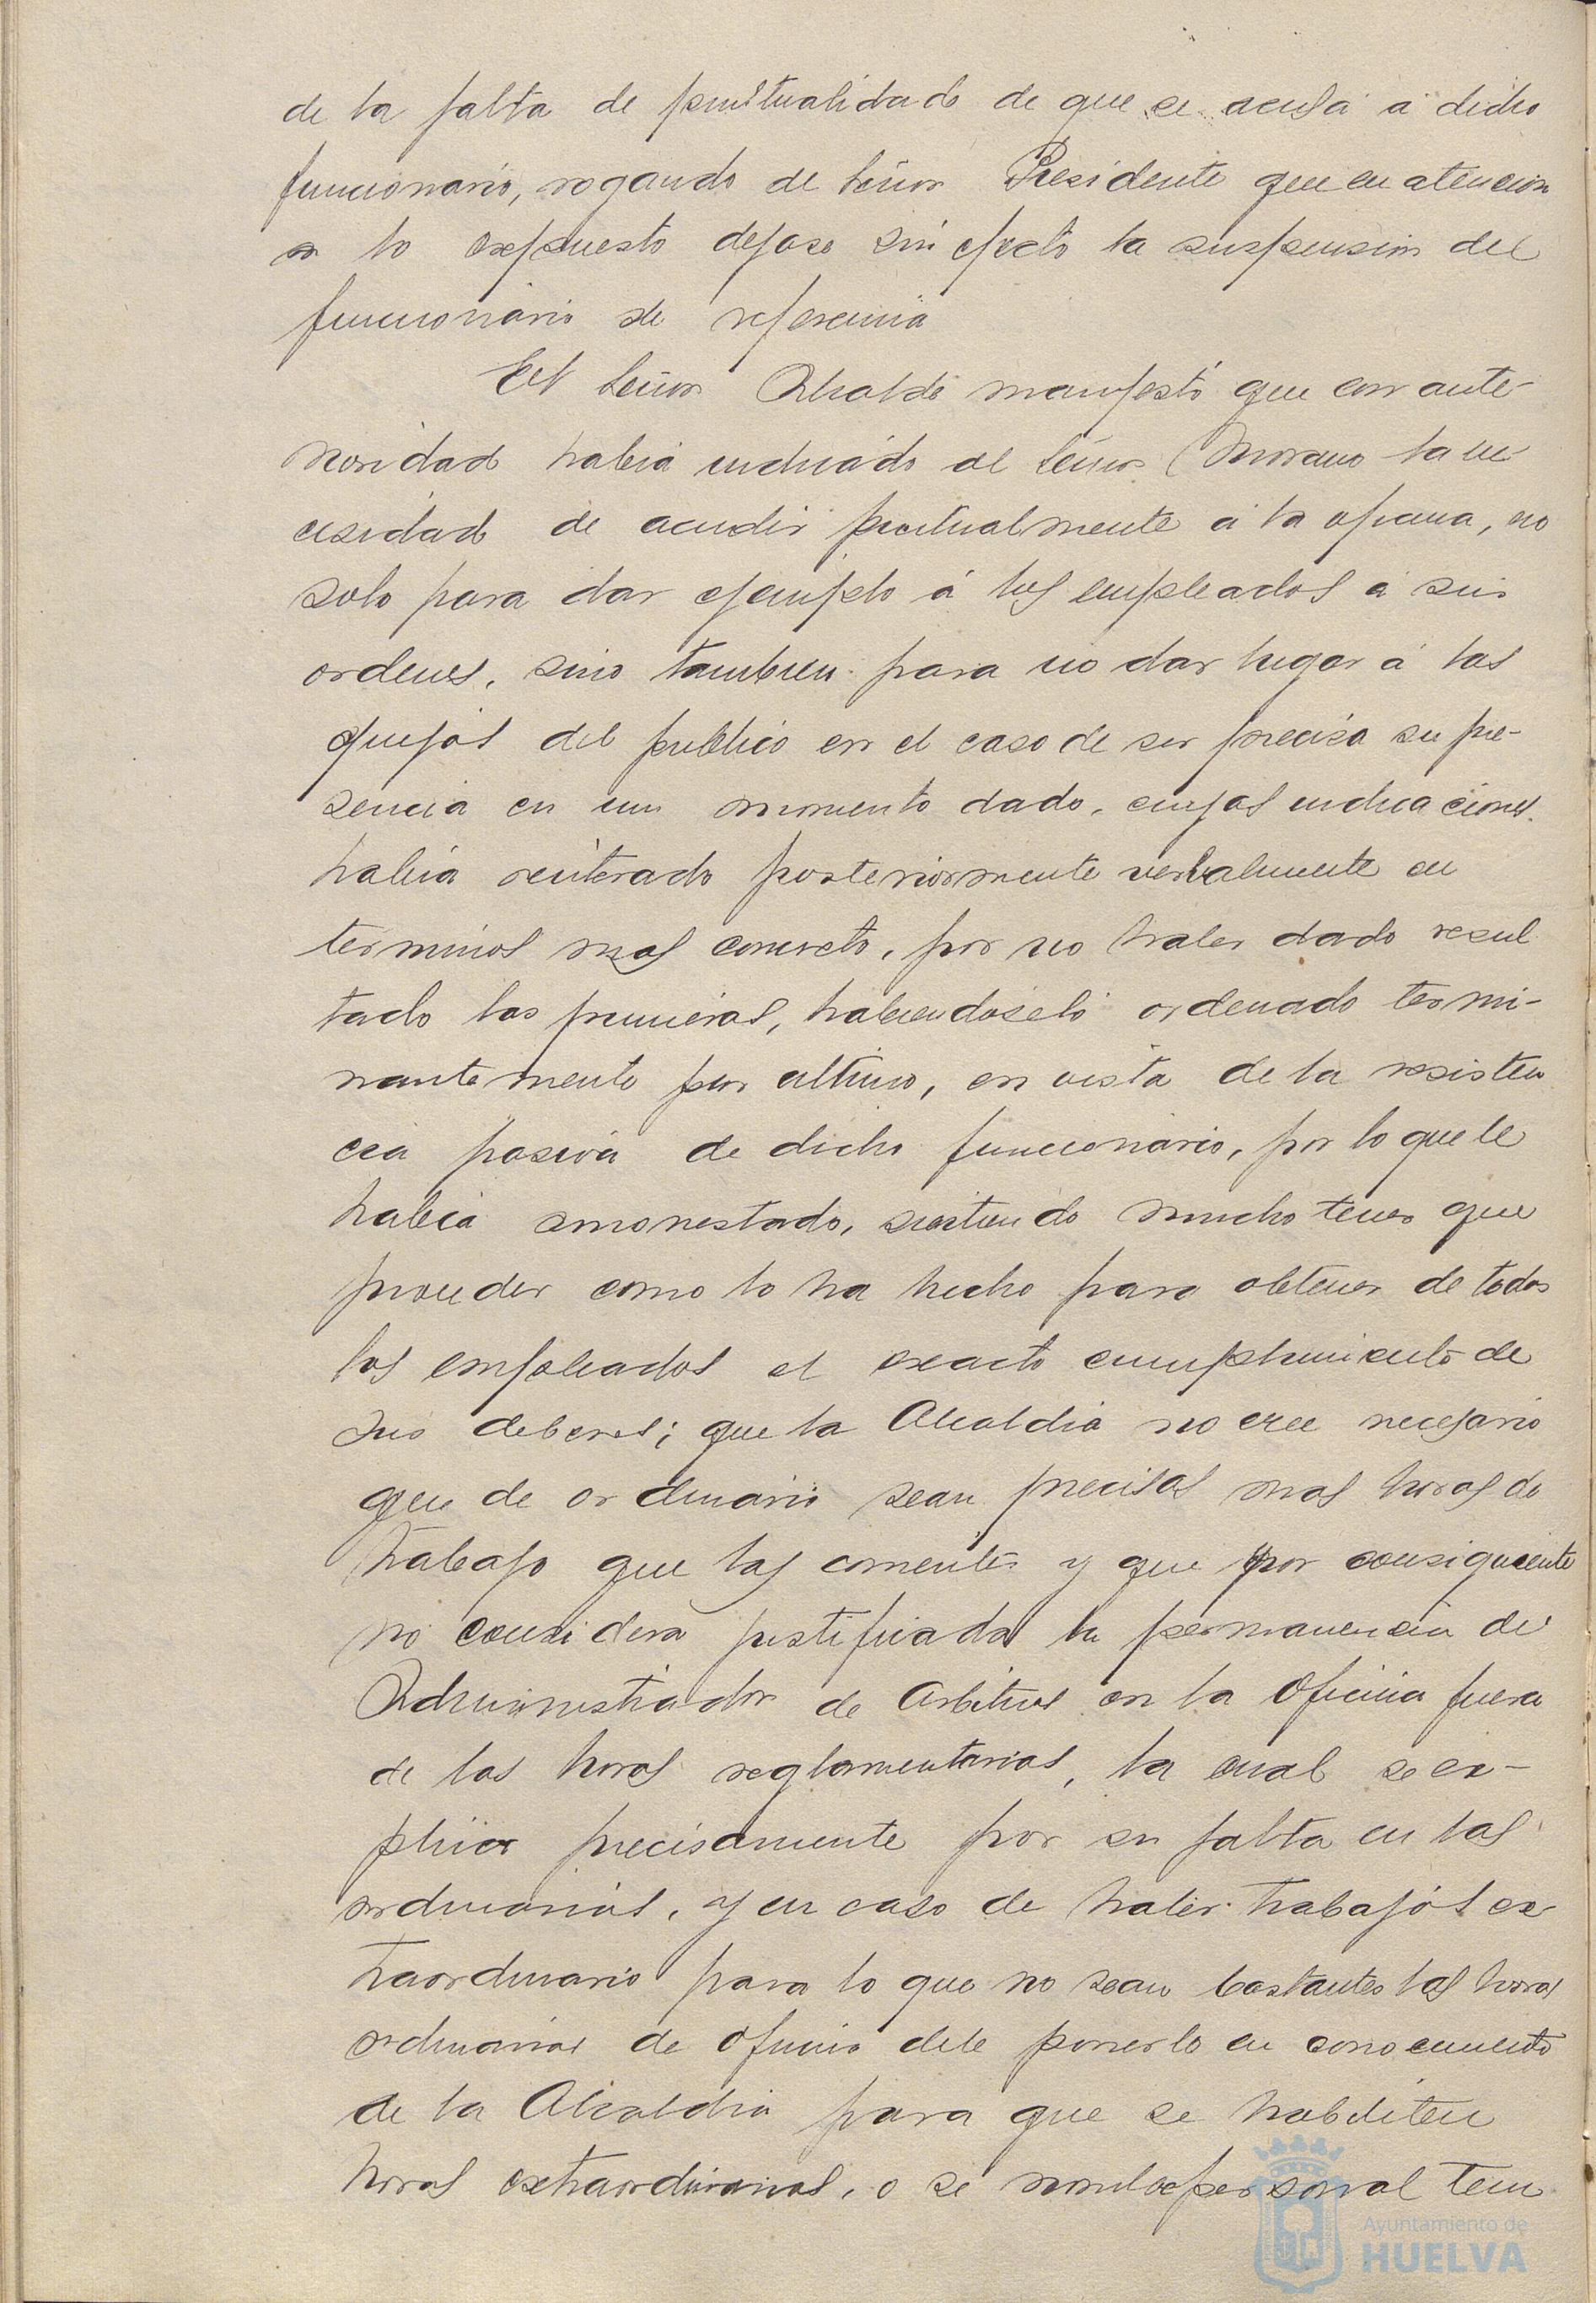 de la falta de puntualidad de que se acusa a dicho
funcionario, rogando de Señor Presidente que en atencion
a lo expuesto dejase sin efecto la suspension del
funcionario de referencia
El Señor Alcalde manifestó que con ante-
rioridad habia indicado al Señor Morano la ne
cesidad de acudir puntualmente á la oficina, no
solo para dar ejemplo á los empleados á sus
ordenes, sino tambien para no dar lugar á las
quejas del publico en el caso de ser precisa su pre-
sencia en un momento dado, cuyas indicaciones
habia reiterado posteriormente verbalmente en
terminos mas concreto, por no haber dado resul
tado las primeras, habiendoselo ordenado termi-
nantemente por ultimo, en vista de la resisten
cia pasiva de dicho funcionario, por lo que le
habia amonestado, sintiendo mucho tener que
proceder como lo ha hecho para obtener de todos
los empleados el exacto cumplimiento de
sus deberes; que la Alcaldia no cree necesario
que de ordinario sean precisas mas horas de
trabajo que las corrientes y que por consiguiente
no considera justificada la permanencia de
Administrador de Arbitrios en la Oficina fuera
de las horas reglamentarias, la cual se ex-
plica precisamente por su falta en las
ordinarias, y en caso de haber trabajos ex-
traordinario para lo que no sean bastantes las horas
ordinarias de oficina debe ponerlo en conocimiento
de la Alcaldia para que se habiliten
horas extraordinarias, o se nombre personal tem
Ayuntamiento de
HUELVA